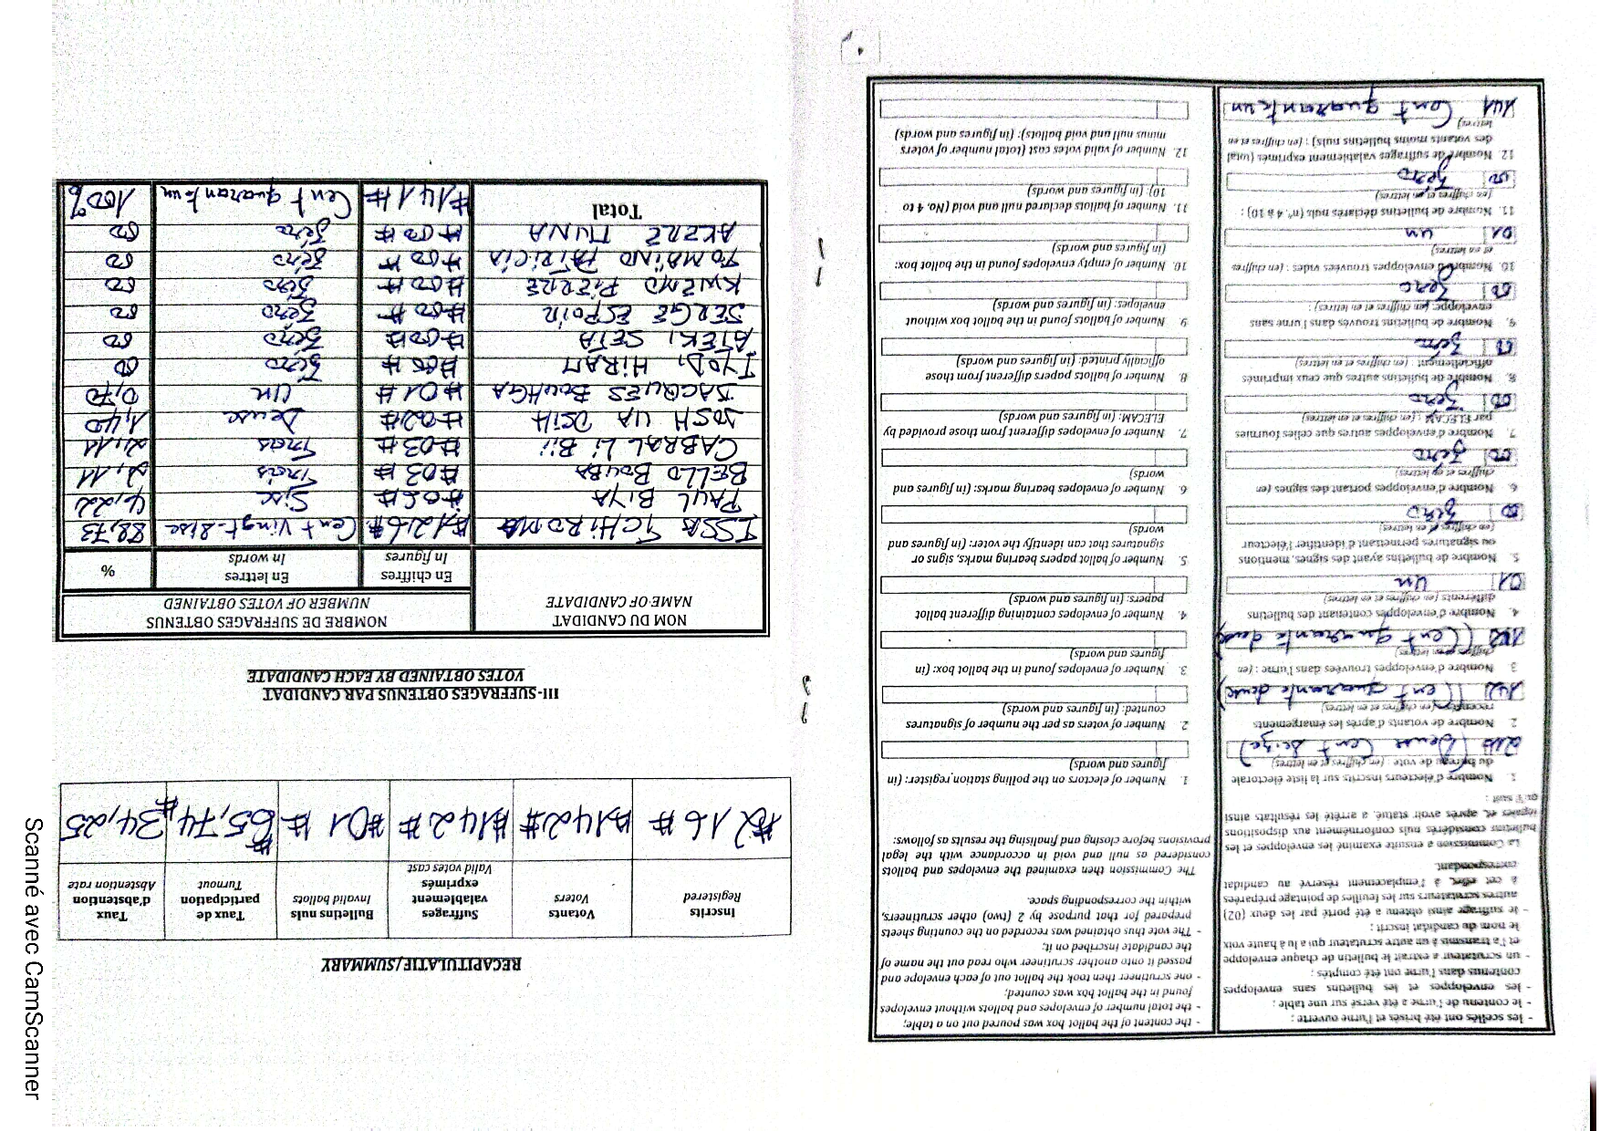 - les scellés ont été brisés et l'urne ouverte ;
- le contenu de l'urne a été versé sur une table ;
- les enveloppes et les bulletins sans enveloppes
contenus dans l'urne ont été comptés ;
- un scrutateur a extrait le bulletin de chaque enveloppe
et l'a transmis à un autre scrutateur qui a lu à haute voix
le nom du candidat inscrit ;
- le suffrage ainsi obtenu a été porté par les deux (02)
autres scrutateurs sur les feuilles de pointage préparées
à cet effet, à l'emplacement réservé au candidat
correspondant.
La Commission a ensuite examiné les enveloppes et les
bulletins considérés nuls conformément aux dispositions
légales et, après avoir statué, a arrêté les résultats ainsi
qu'il suit :
1. Nombre d'électeurs inscrits sur la liste électorale
du bureau de vote : (en chiffres et en lettres)
216 (Deux Cent Seize)
2. Nombre de votants d'après les émargements
recensés : (en chiffres et en lettres)
142 (Cent quarante deux)
3. Nombre d'enveloppes trouvées dans l'urne : (en
chiffres et en lettres)
142 (Cent quarante deux)
4. Nombre d'enveloppes contenant des bulletins
différents : (en chiffres et en lettres)
01 un
5. Nombre de bulletins ayant des signes, mentions
ou signatures permettant d'identifier l'électeur
(en chiffres et en lettres)
00 Zéro
6. Nombre d'enveloppes portant des signes (en
chiffres et en lettres)
00 Zéro
7. Nombre d'enveloppes autres que celles fournies
par ELECAM : (en chiffres et en lettres)
00 Zéro
8. Nombre de bulletins autres que ceux imprimés
officiellement : (en chiffres et en lettres)
00 Zéro
9. Nombre de bulletins trouvés dans l'urne sans
enveloppe: (en chiffres et en lettres) :
00 Zéro
10. Nombre d'enveloppes trouvées vides : (en chiffres
et en lettres)
01 un
11. Nombre de bulletins déclarés nuls (n°. 4 à 10) :
(en chiffres et en lettres)
00 Zéro
12. Nombre de suffrages valablement exprimés (total
des votants moins bulletins nuls) : (en chiffres et en
lettres)
141 Cent quarante un
- the content of the ballot box was poured out on a table;
- the total number of envelopes and ballots without envelopes
found in the ballot box was counted;
- one scrutineer then took the ballot out of each envelope and
passed it onto another scrutineer who read out the name of
the candidate inscribed on it;
- The vote thus obtained was recorded on the counting sheets
prepared for that purpose by 2 (two) other scrutineers,
within the corresponding space.
The Commission then examined the envelopes and ballots
considered as null and void in accordance with the legal
provisions before closing and finalising the results as follows:
1. Number of electors on the polling station register: (in
figures and words)
2. Number of voters as per the number of signatures
counted: (in figures and words)
3. Number of envelopes found in the ballot box: (in
figures and words)
4. Number of envelopes containing different ballot
papers: (in figures and words)
5. Number of ballot papers bearing marks, signs or
signatures that can identify the voter: (in figures and
words)
6. Number of envelopes bearing marks: (in figures and
words)
7. Number of envelopes different from those provided by
ELECAM: (in figures and words)
8. Number of ballot papers different from those
officially printed: (in figures and words)
9 Number of ballots found in the ballot box without
envelopes: (in figures and words)
10. Number of empty envelopes found in the ballot box:
(in figures and words)
11. Number of ballots declared null and void (No. 4 to
10): (in figures and words)
12. Number of valid votes cast (total number of voters
minus null and void ballots): (in figures and words)
RECAPITULATIF/SUMMARY
Inscrits Registered
Votants Voters
Suffrages valablement exprimés Valid votes cast
Bulletins nuls Invalid ballots
Taux de participation Turnout
Taux d'abstention Abstention rate
#216# #142# #142# #01# #65,74# 34,25
III-SUFFRAGES OBTENUS PAR CANDIDAT
VOTES OBTAINED BY EACH CANDIDATE
NOM DU CANDIDAT NOMBRE DE SUFFRAGES OBTENUS
NAME OF CANDIDATE NUMBER OF VOTES OBTAINED
En chiffres En lettres %
In figures In words
ISSA TCHIROMA #126# Cent Vingt-Six 88,73
PAUL BIYA #06# Six 4,22
BELLO BOUBA #03# Trois 2,11
CABRAL LiBii #03# Trois 2,11
JOSHUA OSIH #02# Deux 1,40
JACQUES BOUHGA #01# Un 0,70
IYODI HiRAM #00# Zéro 00
ATEKI SETA #00# Zéro 00
SERGE ESPOiR #00# Zéro 00
KWEMO PiERRE #00# Zéro 00
TOMAÏNO PATRICIA #00# Zéro 00
AKERE MUNA #00# Zéro 00
Total #141# Cent quarante un 100%
Scanné avec CamScanner